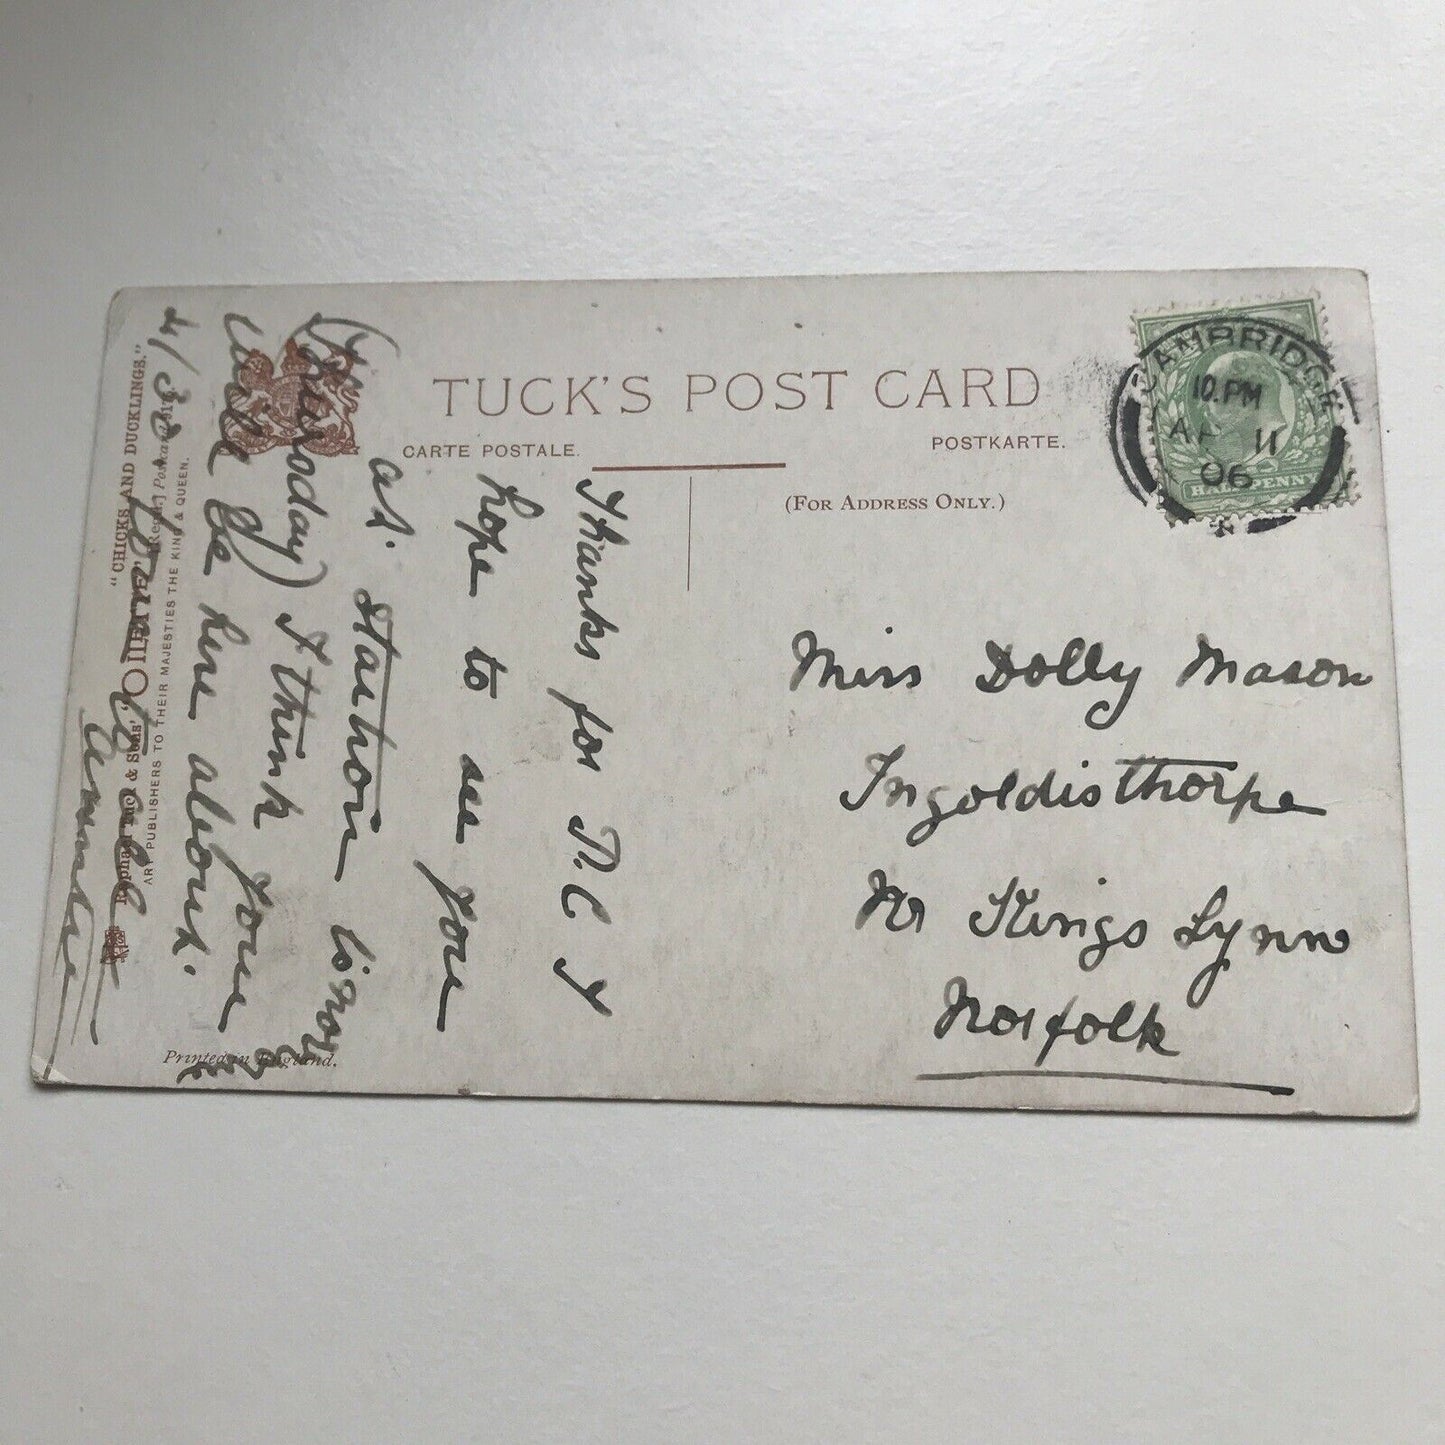 TUCK'S POST CARD
CARTE POSTALE.
POSTKARTE.
(FOR ADDRESS ONLY.)
CAMBRIDGE
10.PM
AP 11
06
HALFPENNY
Miss Dolly Mason
Ingoldisthorpe
Nr Kings Lynn
Norfolk
Thanks for P.C I
hope to see you
at. Station
(Thursday) I think you
will be here about.
4/30.
Raphael Tuck & Sons' "OILETTE" [Regd.] Postcard
"CHICKS AND DUCKLINGS."
ART PUBLISHERS TO THEIR MAJESTIES THE KING & QUEEN.
Printed in England.